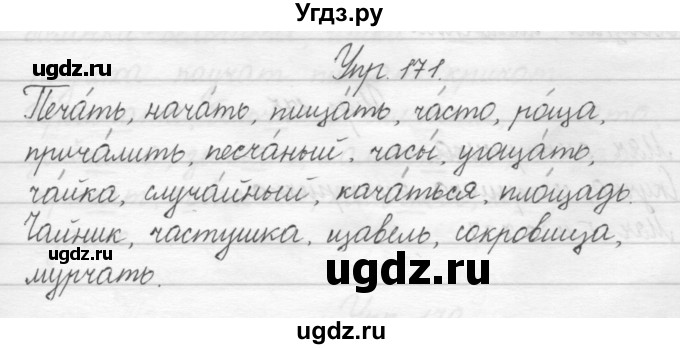 Угдз.ру
ugdz.ru
Упр. 171.
Печа́ть, нача́ть, пища́ть, ча́сто, ро́ща,
прича́лить, песча́ный, часы́, угоща́ть,
ча́йка, случа́йный, кача́ться, пло́щадь.
Чайник, частушка, щавель, сокровища,
мурчать.
ugdz.ru
ugdz.ru